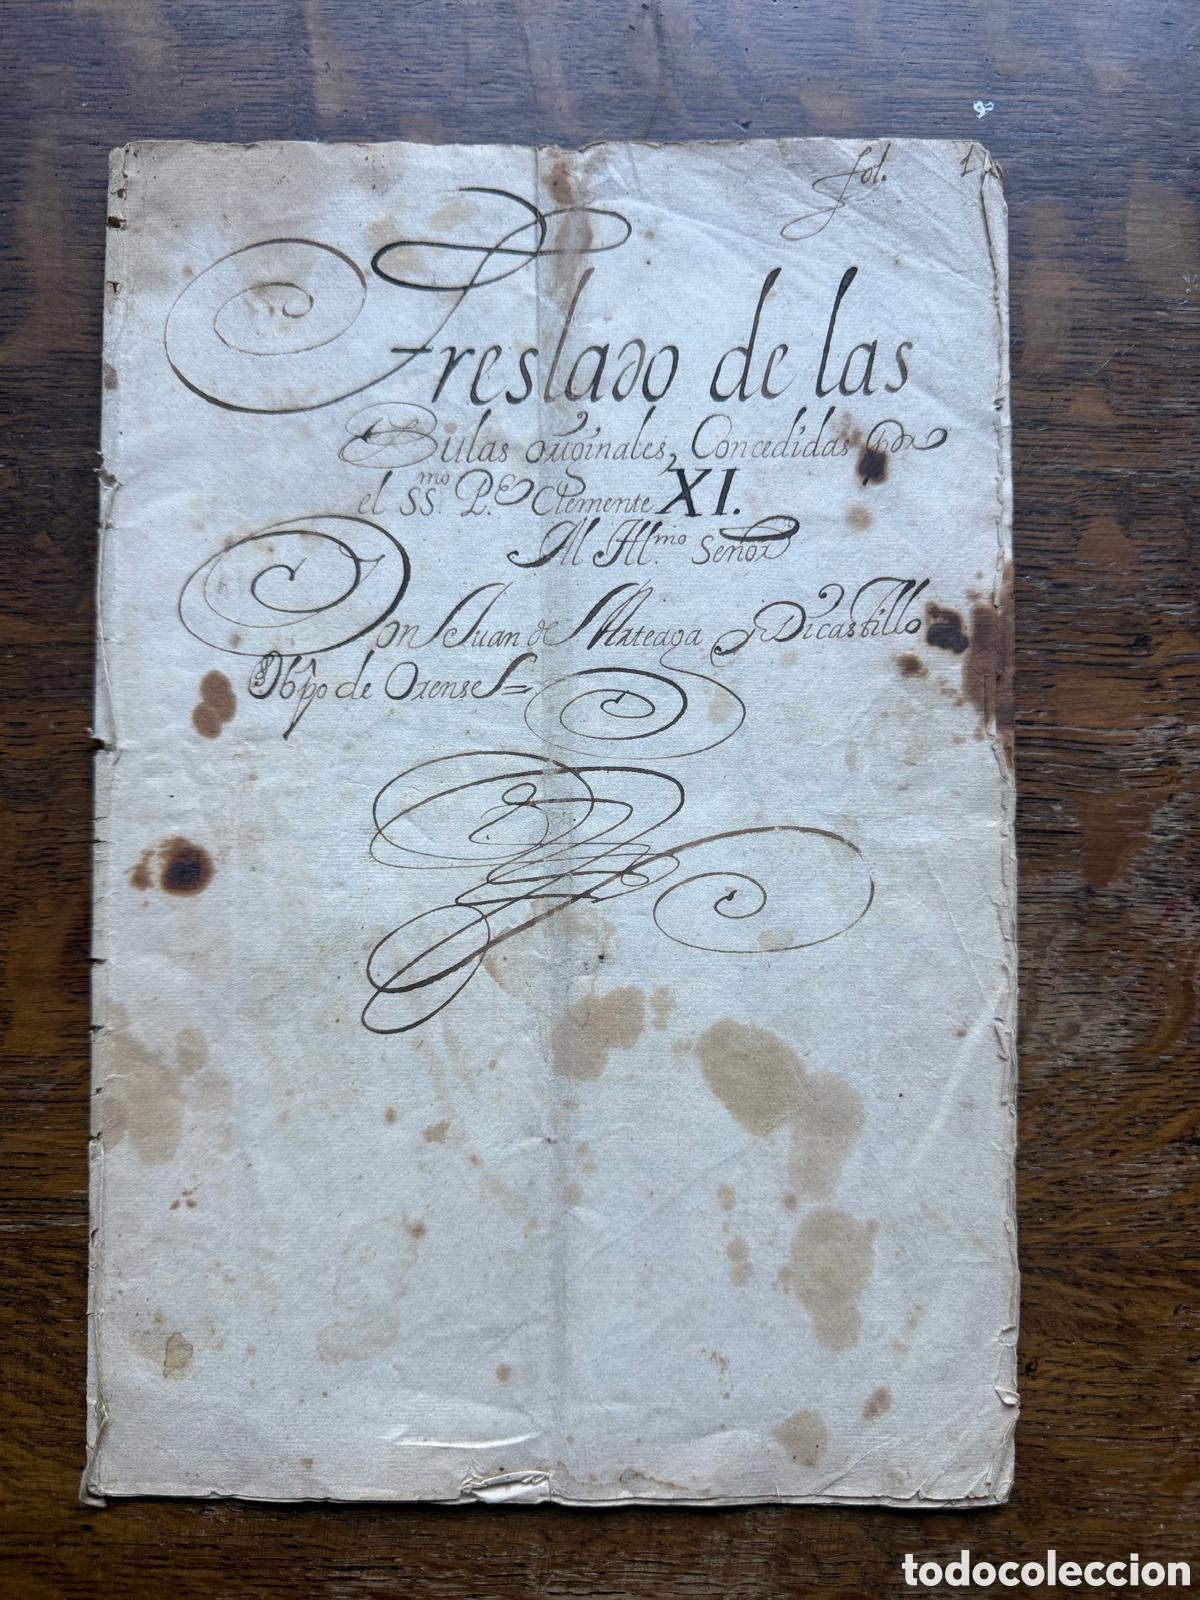 fol. 1
Treslado de las
Bulas originales, Concedidas por
el SS.mo P.e Clemente XI.
Al Ill.mo Señor
Don Juan de Arteaga y Dicastillo
Obpo de Orense =
todocoleccion